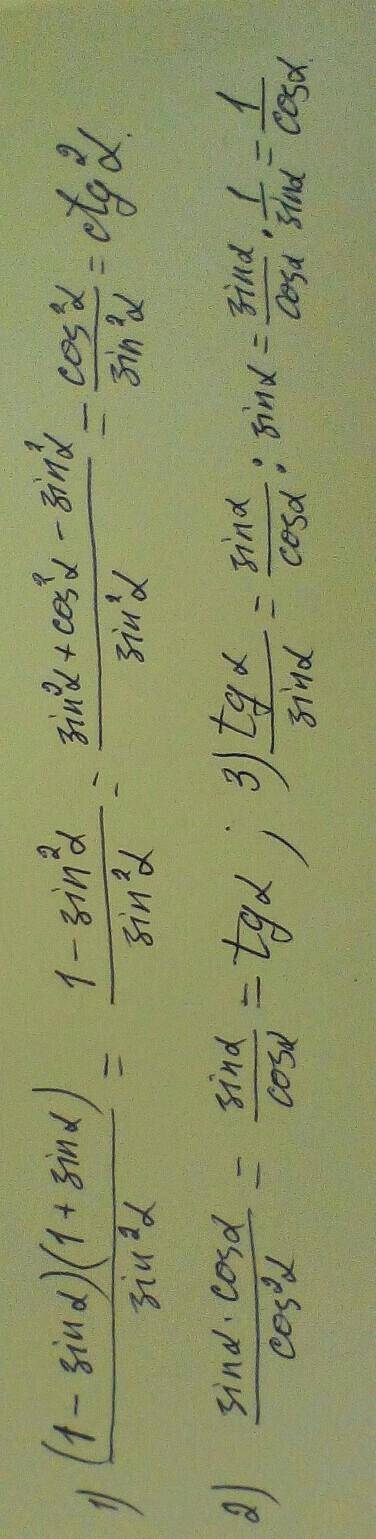 1) (1 - sinα)(1 + sinα) / sin²α = 1 - sin²α / sin²α = sin²α + cos²α - sin²α / sin²α = cos²α / sin²α = ctg²α.
2) sinα · cosα / cos²α = sinα / cosα = tgα ; 3) tgα / sinα = sinα / cosα : sinα = sinα / cosα · 1 / sinα = 1 / cosα.